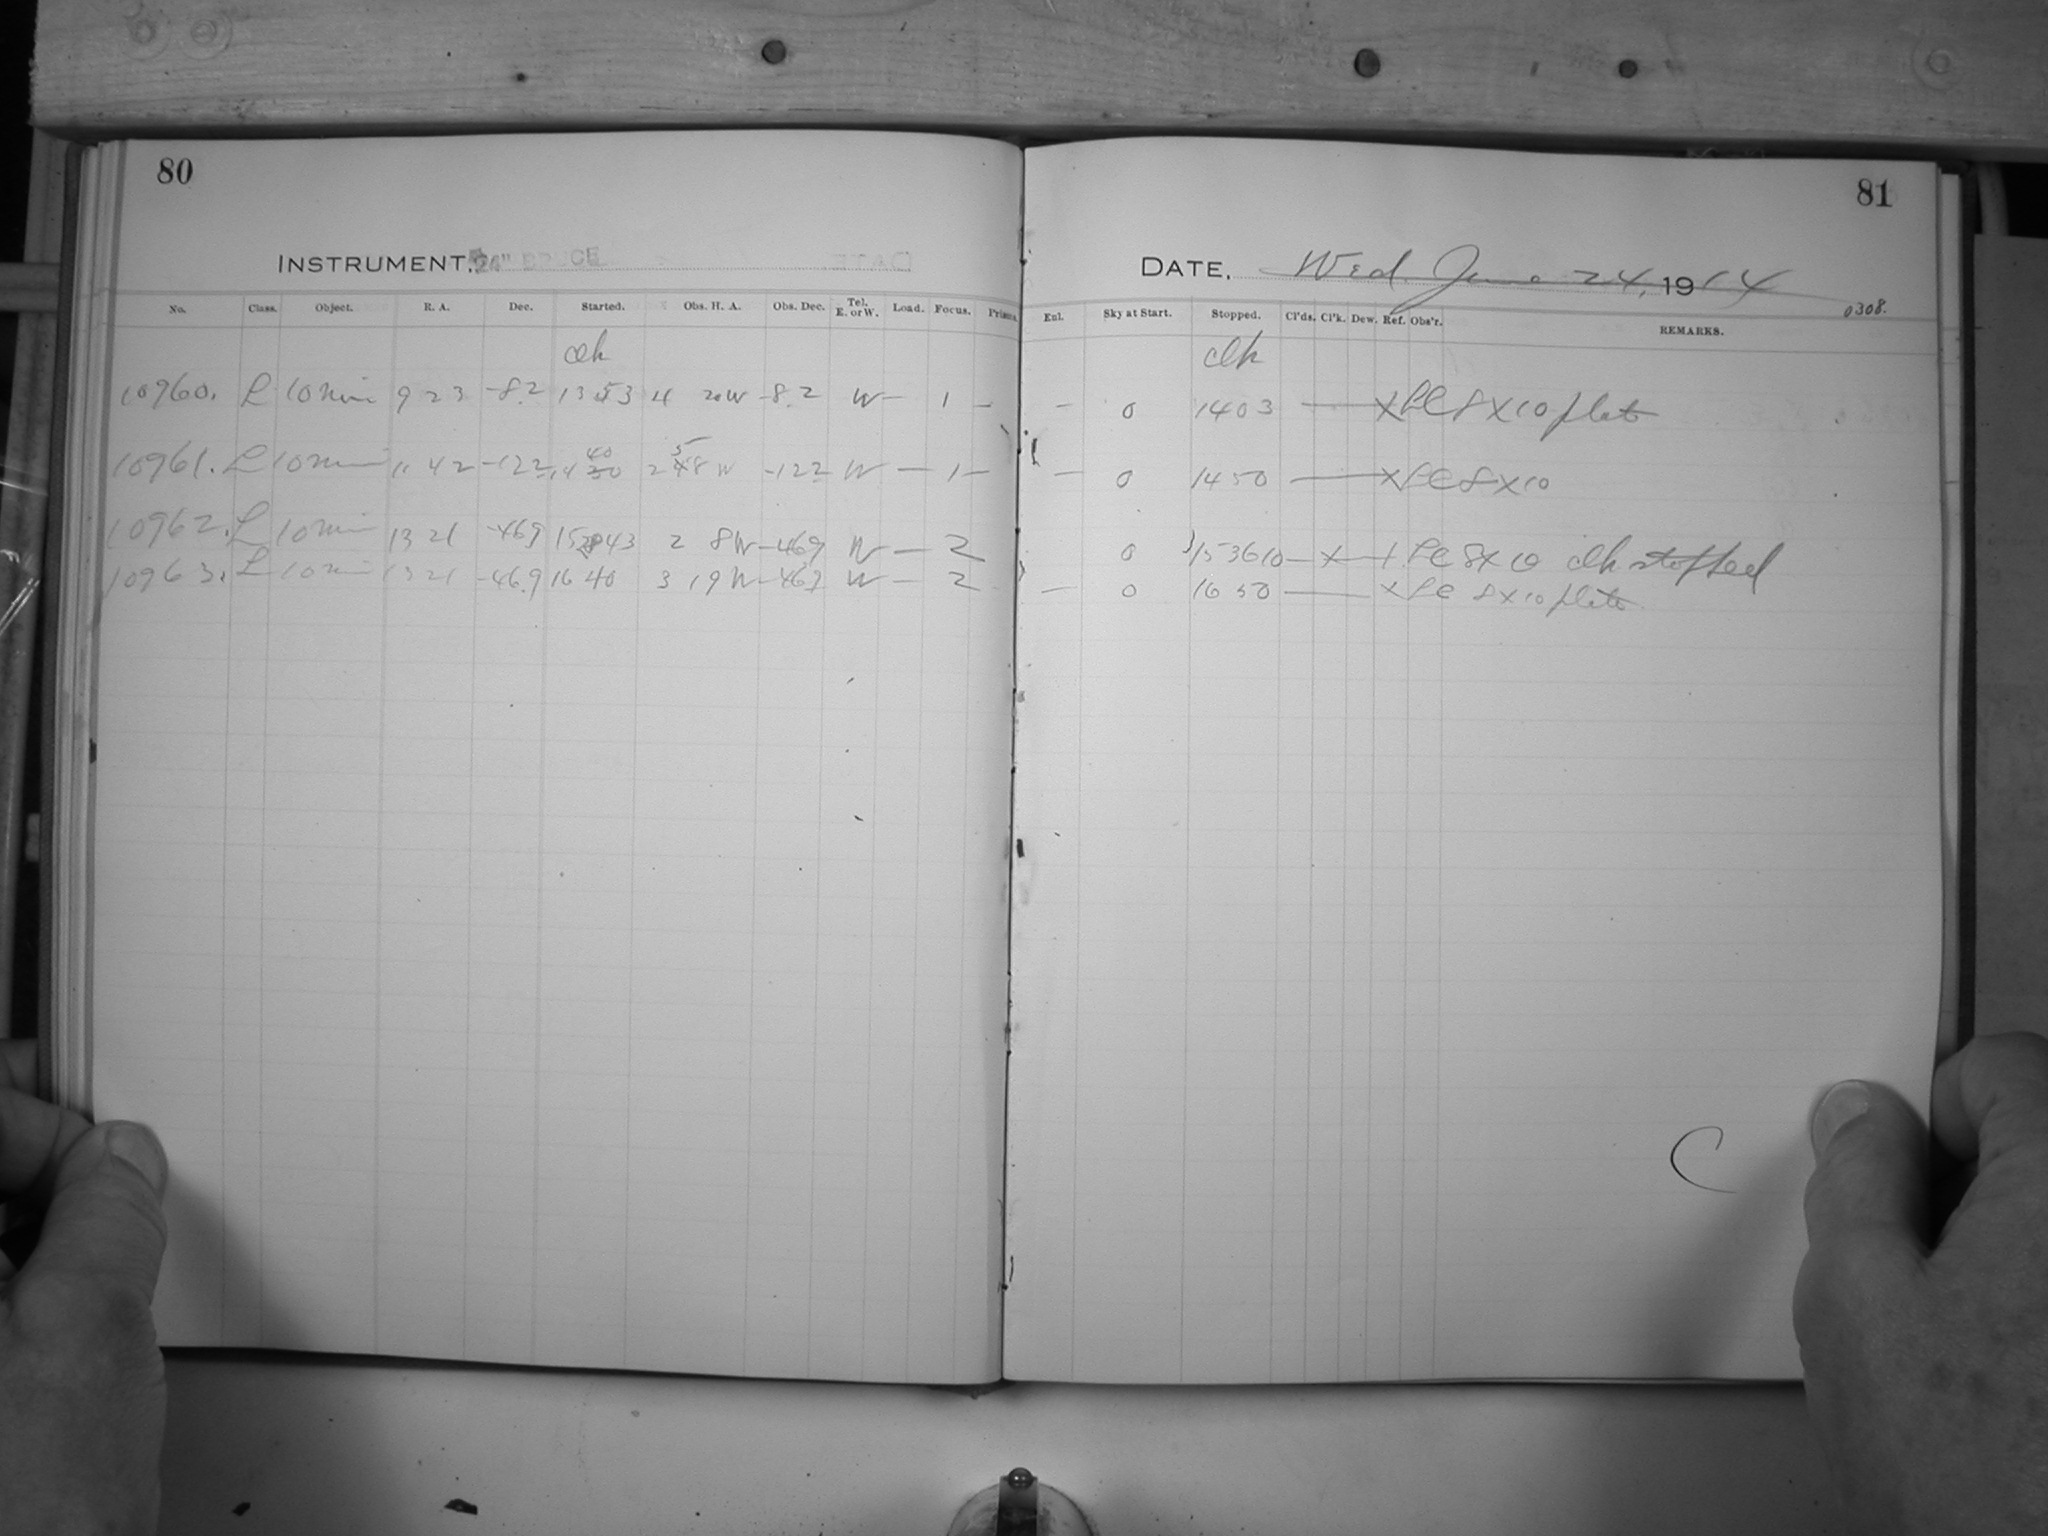 80
INSTRUMENT. 24" BRUCE
No. Class. Object. R. A. Dec. Started. Obs. H. A. Obs. Dec. Tel. E. or W. Load. Focus. Prisms.
clk
10960. L 10 min 9 23 -8.2 13 53 4 20 W -8.2 W — 1 —
10961. L 10 min 11 42 -12.2 14 40 2 58 W -12.2 W — 1 —
10962. L 10 min 13 21 -46.9 15 43 2 8 W -46.9 W — 2
10963. L 10 min 13 21 -46.9 16 40 3 19 W -46.9 W — 2
81
DATE. Wed. June 24, 1914
0308.
Enl. Sky at Start. Stopped. Cl'ds. Cl'k. Dew. Ref. Obs'r. REMARKS.
clk
— 0 1403 — X LC 8 X 10 plate
— 0 1450 — X LC 8 X 10
0 153610 — X — X LC 8 X 10 clk stopped
— 0 16 50 — X LC 8 X 10 plate
C